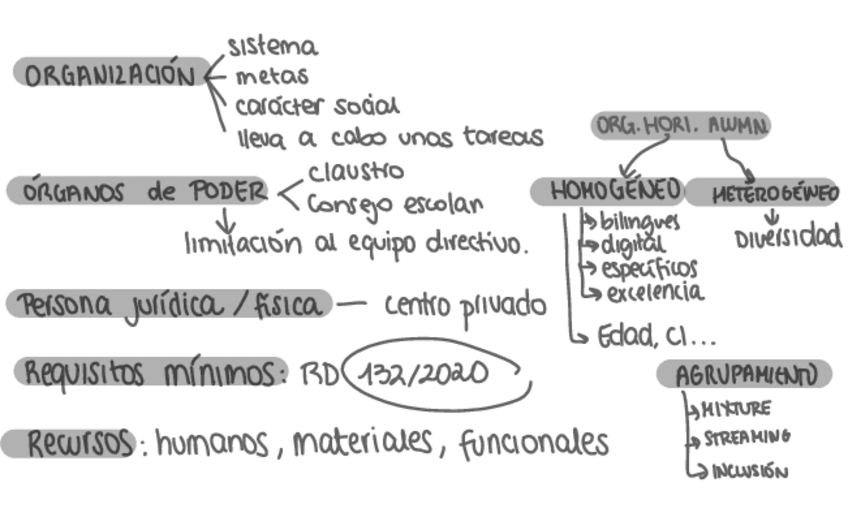 ORGANIZACIÓN
sistema
metas
carácter social
lleva a cabo unas tareas
ÓRGANOS de PODER
claustro
Consejo escolar
limitación al equipo directivo.
Persona jurídica / física — centro privado
Requisitos mínimos: RD 132/2020
Recursos: humanos, materiales, funcionales
ORG. HORI. ALUMN
HOMOGÉNEO
bilingues
digital
específicos
excelencia
Edad, CI...
HETEROGÉNEO
Diversidad
AGRUPAMIENTO
MIXTURE
STREAMING
INCLUSIÓN